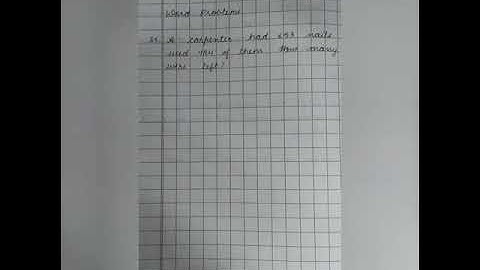 Word Problems
A carpenter had nails
used of them How many
were left?